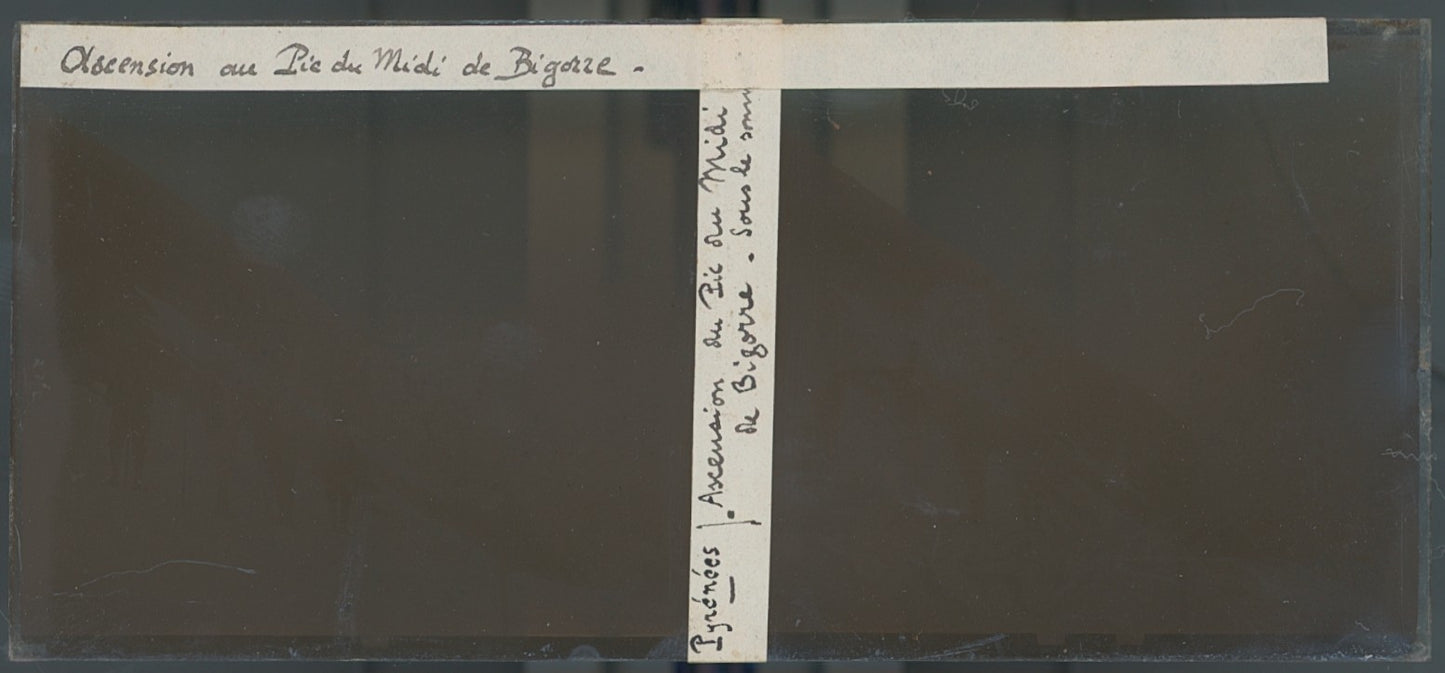 Ascension au Pic du Midi de Bigorre -
Pyrénées . Ascension du Pic du Midi
de Bigorre . Sous le som